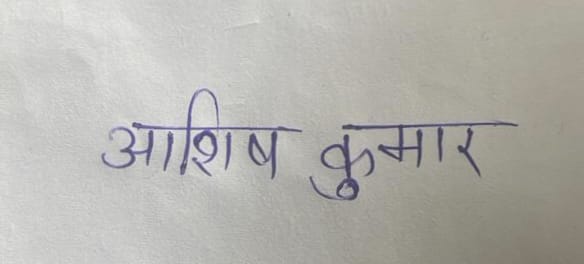 आशिष कुमार